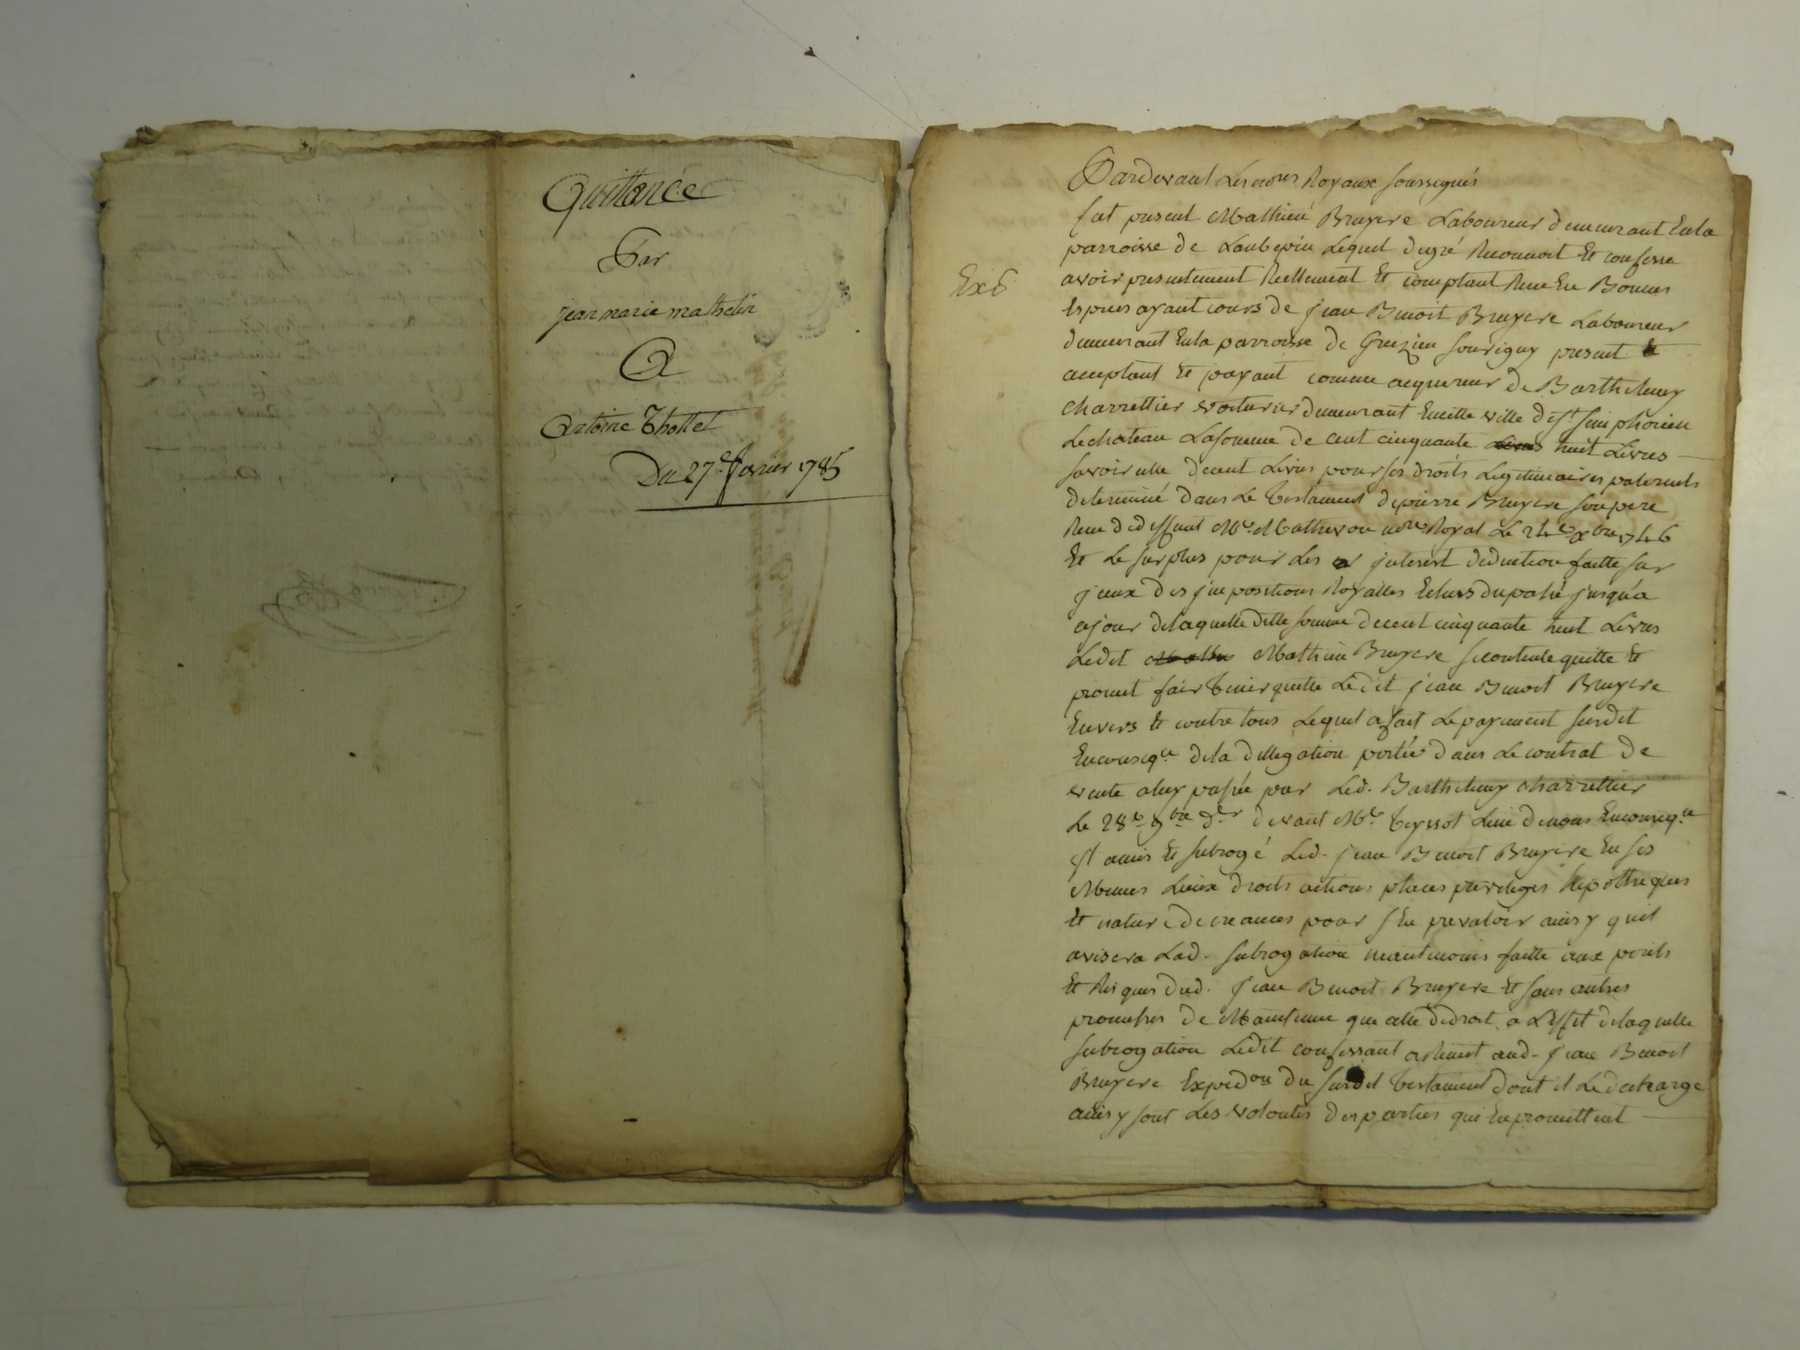 Quittance
Par
jean marie mathelin
A
Antoine Thollet
Du 27e. fevrier 1785
Exé
Pardevant Les nores. Royaux soussignés
fut present Mathieu Bruyere Laboureur demeurant En la
parroisse de Laubepin Lequel degré Reconnoit Et confesse
avoir presentement Reellement Et comptant Receu En Bonnes
Especes ayant cours de jean Benoit Bruyere Laboureur
demeurant En la parroisse de Grezieu Souvigny present Et
acceptant Et payant comme acquereur de Barthelemy
charrettier voiturier demeurant En cette ville de St. simphorien
Le chateau La somme de cent cinquante huit Livres
savoir celle de cent Livres pour ses droits Legitimaires paternels
determiné dans Le testament de pierre Bruyere son pere
Receu de deffunt Me. Mathevon nore Royal Le 24e xbre 1746
Et Le surplus pour Les interest deduction faitte sur
jceux des jmpositions Royalles Echues du passé jusqu'a
ce jour de laquelle ditte somme de cent cinquante huit Livres
Ledit Mathieu Bruyere se contente quitte Et
promet faire tenir quitte Ledit jean Benoit Bruyere
Envers Et contre tous Lequel a fait Le payement susdit
En conseqce. de la dellegation portée dans Le contrat de
vente a luy passée par Led. Barthelemy charrettier
Le 28e. 9bre der. devant Me. teyssot L'un de nous En conseqce
Il a mis Et subrogé Led. jean Benoit Bruyere En ses
Memes Lieux droits actions places privileges hipotheques
Et nature de creances pour s'En prevaloir ainsy qu'il
avisera Lad. subrogation neantmoins faitte aux perils
Et Risques dud. jean Benoit Bruyere Et sans autres
promesses de Maintenue que celle de droit a L'Effet de laquelle
subrogation Ledit confessant a Remit aud. jean Benoit
Bruyere Expedon du susdit testament dont il Le decharge
ainsy sont Les volontés des parties qui En promettent